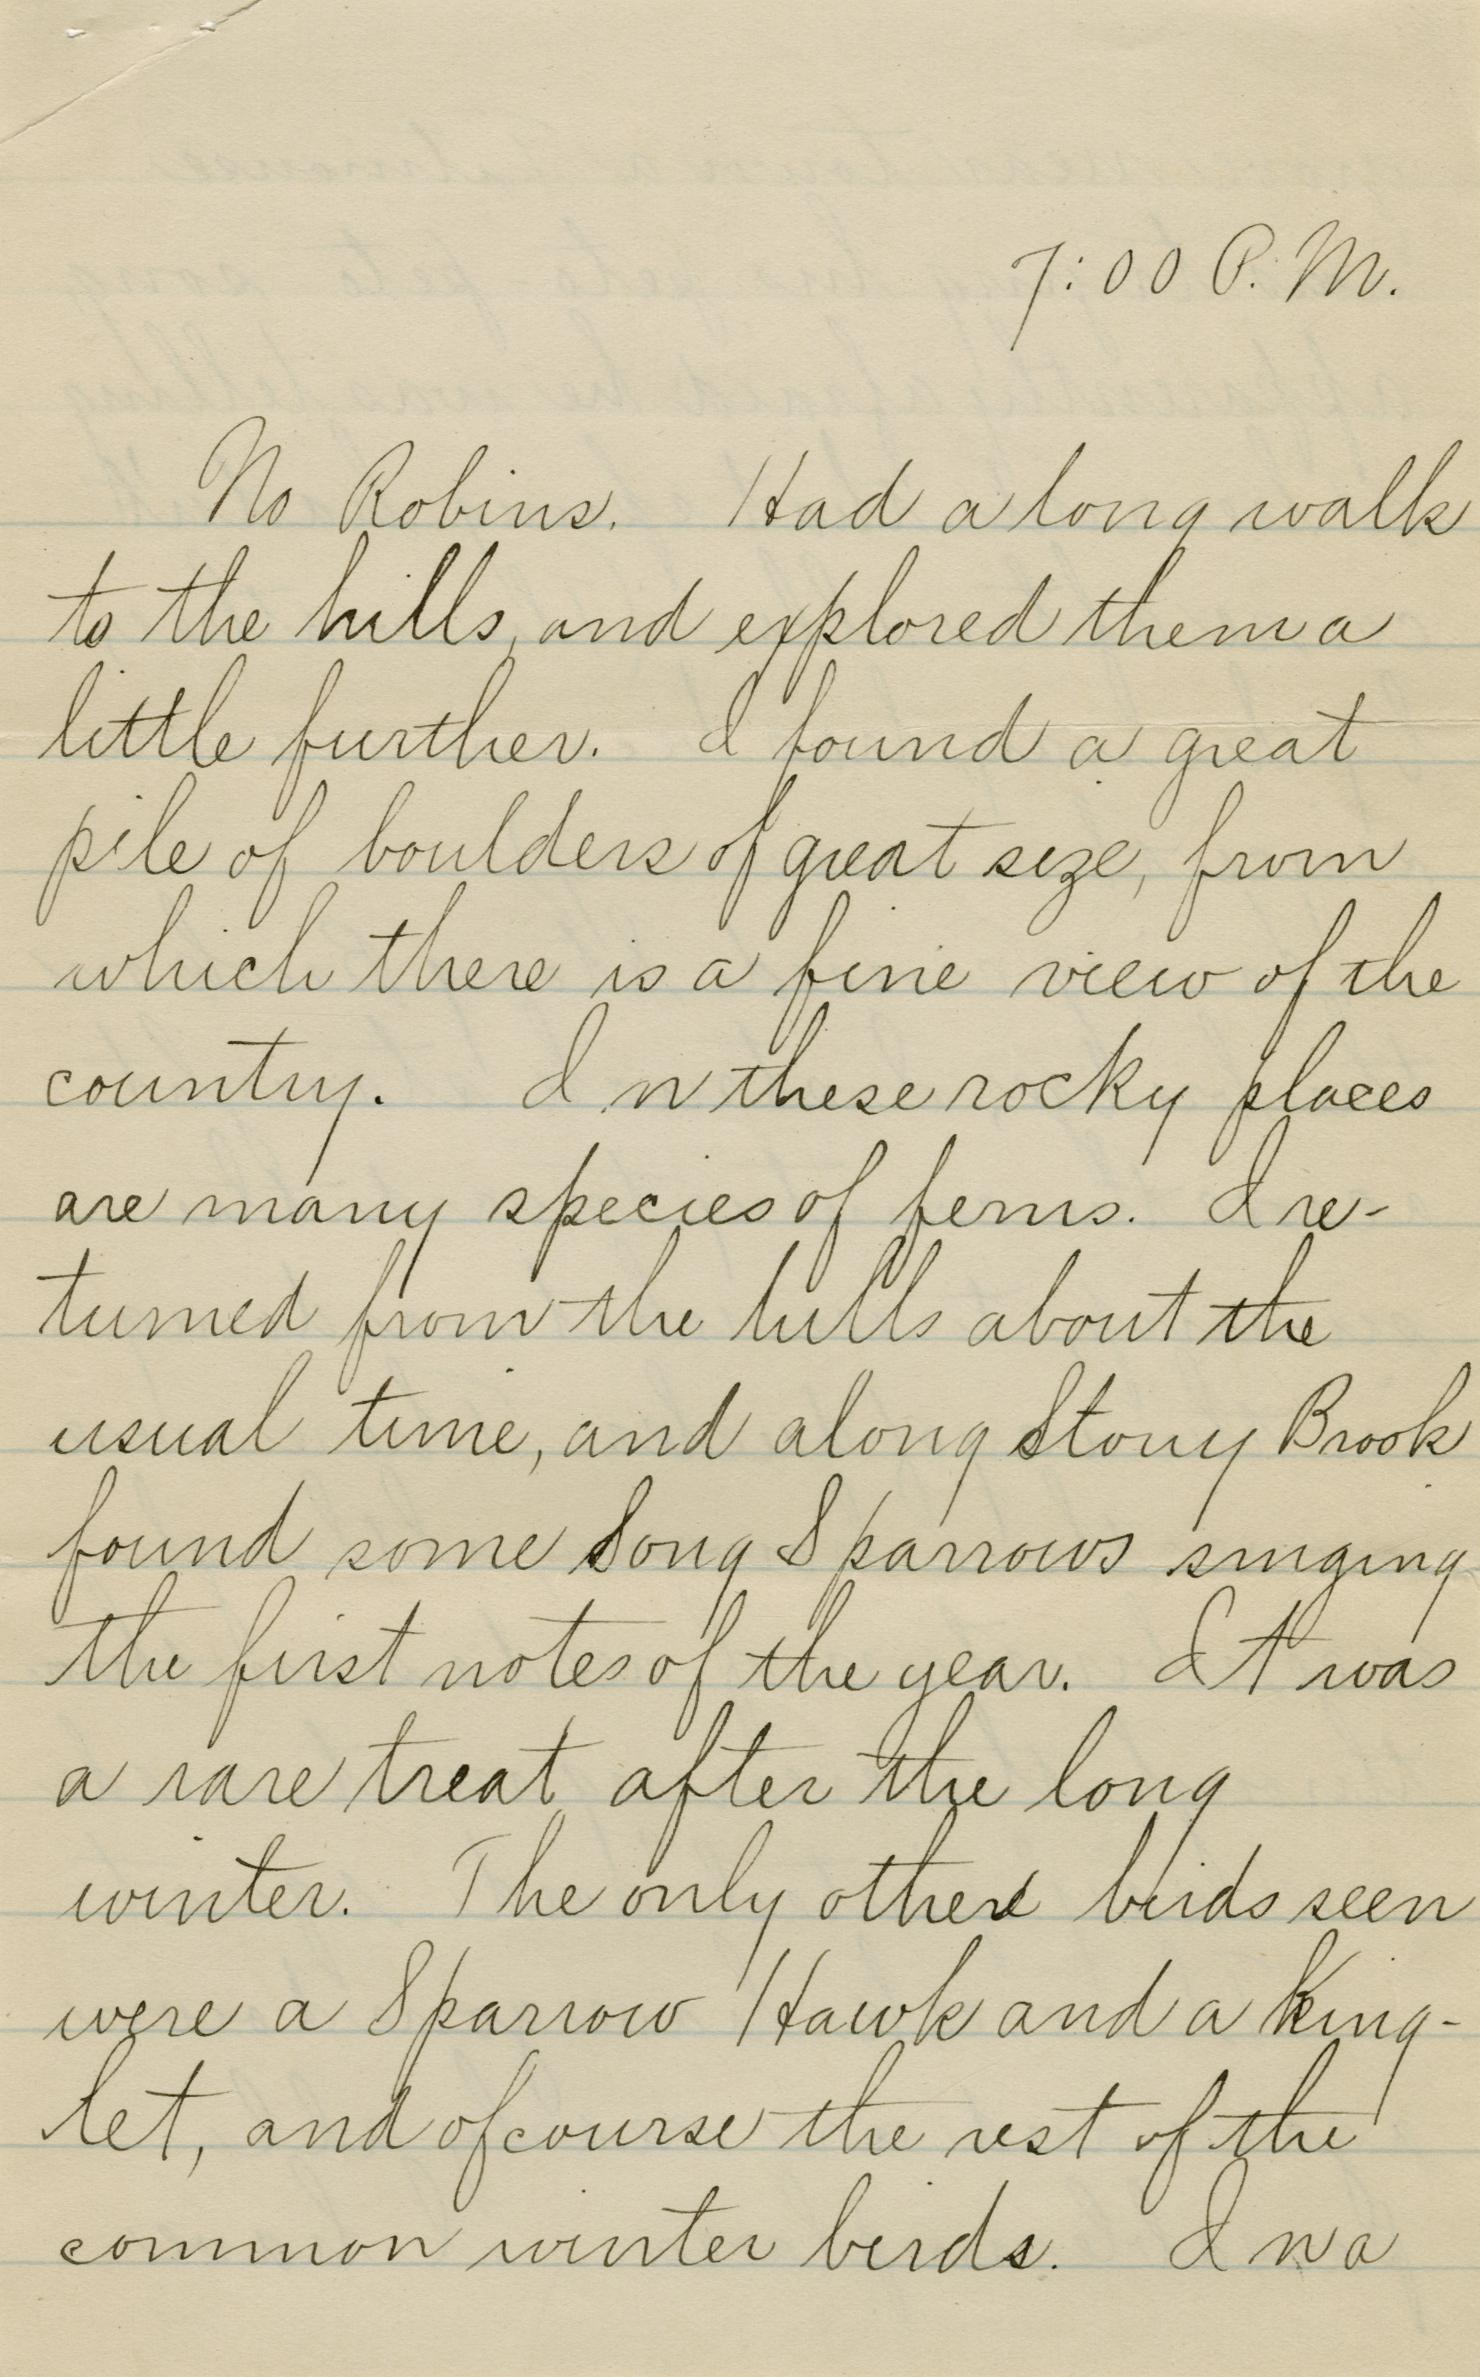 7:00 P. M.
No Robins. Had a long walk
to the hills, and explored them a
little further. I found a great
pile of boulders of great size, from
which there is a fine view of the
country. In these rocky places
are many species of ferns. I re-
turned from the hills about the
usual time, and along Stony Brook
found some Song Sparrows singing
the first notes of the year. It was
a rare treat after the long
winter. The only other birds seen
were a Sparrow Hawk and a King-
let, and of course the rest of the
common winter birds. In a